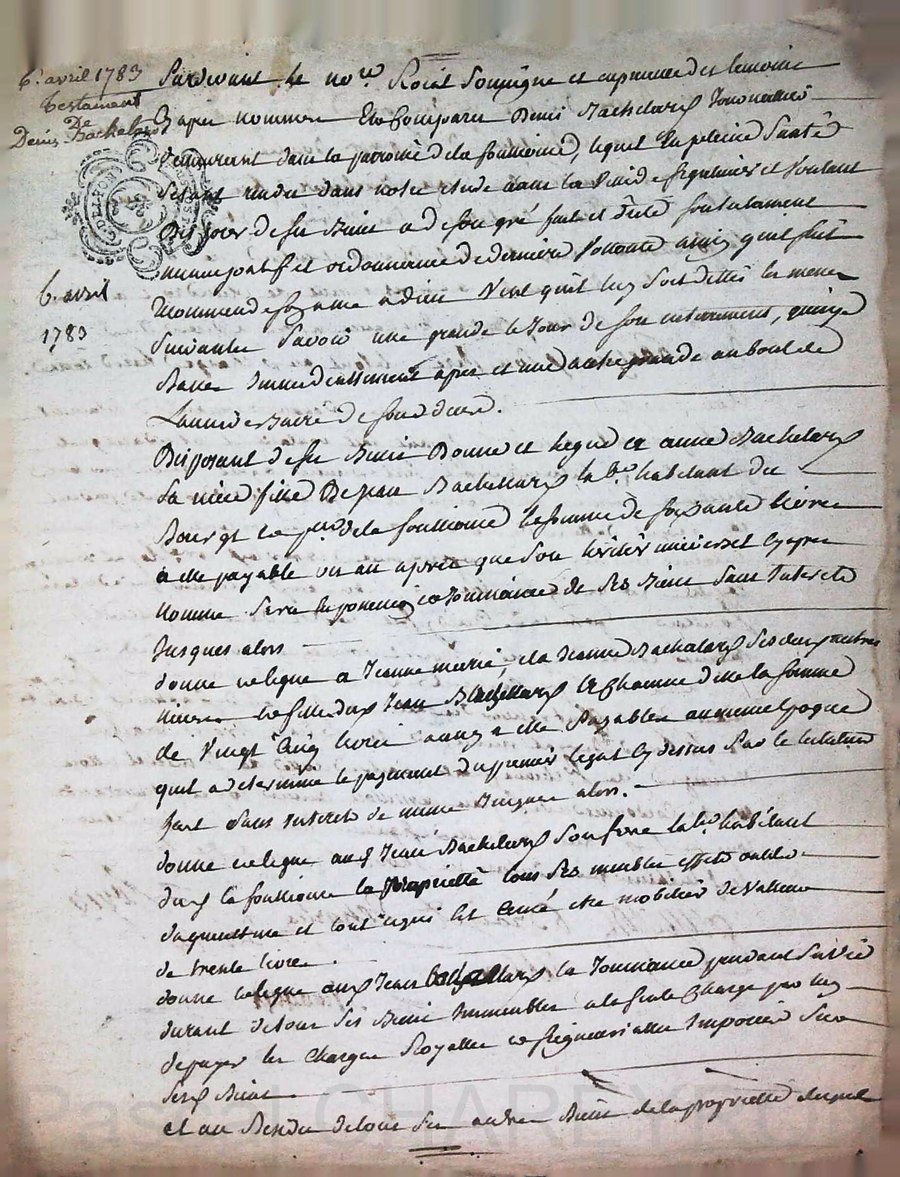 6e avril 1783
testament
De
Denis Bachelard
6 avril
1783
Pardevant le nore Royal soussigne et en presence des temoins
Cy apres nommes Est Comparu Denis Bachelard
demeurant dans la parroisse de la fouillouse, lequel en pleine Santé
S'etant rendu dans notre etude et Voulant
Disposer de ses Biens a de son gré fait et Dicté son testament
nuncupatif et ordonnance de derniere Volonté ainsi quil suit
Recommende son ame a dieu Veut qu'il luy soit dittes les messes
Suivantes Savoir une grande le Jour de son enterrement, quinze
Basses Immediattement apres et une autre grande au bout de
L'anniversaire de son deces.
Disposant de ses Biens Donne et legue a anne Bachelard
Sa niece fille De jean Bachellard labr habitant du
Bourg et psse de la fouillouse la somme de soixante livres
a elle payable un an apres que son heritier universel cy apres
nommé Sera en possession et Jouissance de ses Biens Sans Interets
Jusques alors
donne et legue a Jeanne marie, et a Jeanne Bachelard ses deux autres
nieces filles dud Jean Bachellard a Chacune d'elle la somme
de Vingt Cinq livres a elle Payables au meme Epoque
quil a determiné le payement du premier legat cy dessus Par le testateur
fait Sans Interets de meme Jusques alors.
donne et legue aud Jean Bachelard Son frere labr habitant
dud la fouillouse la propriettè tous ses meubles effets outils
dagriculture et tout ce qui Est Censé etre mobilier de Valleur
de trente livres.
donne et legue aud Jean Bachellard la Jouissance pendant sa Vie
durant de tous ses Biens Immeubles a la seule Charge par luy
de payer les Charges Royalles et seigneurialles Imposées Sur
Sesd Biens
et au Residu de tous Ses autres Biens de la propriettè desquels